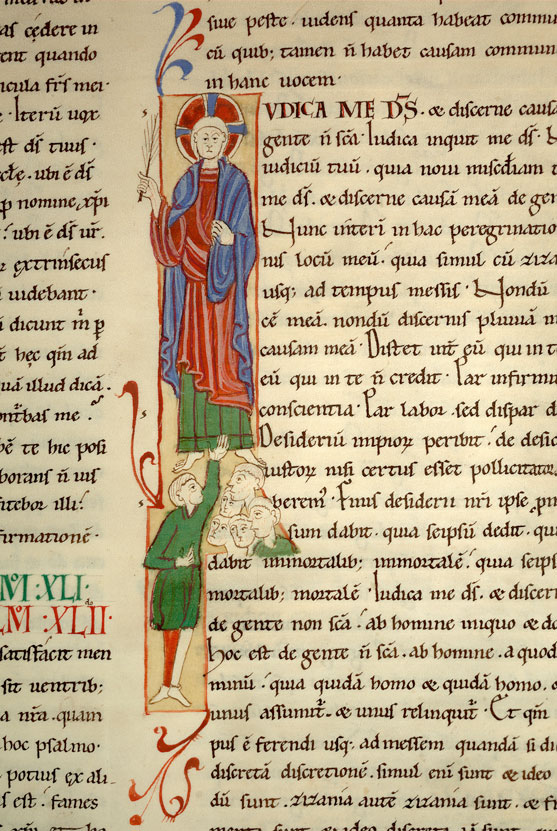 as cędere in
ent quando
icula frs̄ mei
· Iterū uox
est ds̄ tuus ·
ubi ē ds̄
nomine xp̄i
ubi ē ds̄ ur̄.
extrinsecus
uidebant ·
dicunt m̄ p
hęc qm̄ ad
illud dica.
bas me .
te hic posi
borans ñ uis
itebor illi:
firmatione ·
M̄ :XLI·
LM̄ :XLII·
satisfacit men
sit uentrib;
a nr̄a . quam
hoc psalmo ·
potius ex ali
s est . fames
siue peste . uidens quanta habeat commu
cū quib; tamen ñ habet causam commun
in hanc uocem ·
VDICA ME DS̄ . & discerne causa
gente ñ sc̄a . Iudica inquit me ds̄ .
iudiciū tuū . quia noui misc̄diam t
me ds̄ . & discerne causā meā de gen
Nunc interī in hac peregrinatio
nis locū meū . quia simul cū zıza
usq; ad tempus messis . Nondū
cē meā . nondū discernis pluuiā
causam meā . Distet int̄ eū qui in t
eū qui in te ñ credit . Par infirmi
conscientia . Par labor . sed dispar d
Desideriū impioꝝ peribit . de desid
iustoꝝ nisi certus esset pollicitatoꝛ
berem᾽ . Finis desiderii nr̄i ipse
sum dabit . quia seipsū dedit . qui
dabit inmortalib; inmortalē . quia seips
mortalib; mortalē . Iudica me ds̄ . & discern
de gente non sc̄a . ab homine iniquo & do
Hoc est de gente ñ sc̄a . ab homine . a quod
minū . quia quidā homo & quidā homo .
unus assumit᷑ . & unus relinquit᷑ . Et qm̄
pus ē ferendi usq; ad messem quandā si di
discretā discretionē . simul enī sunt & ideo
dū sunt . zızania autē zızania sunt . & fr